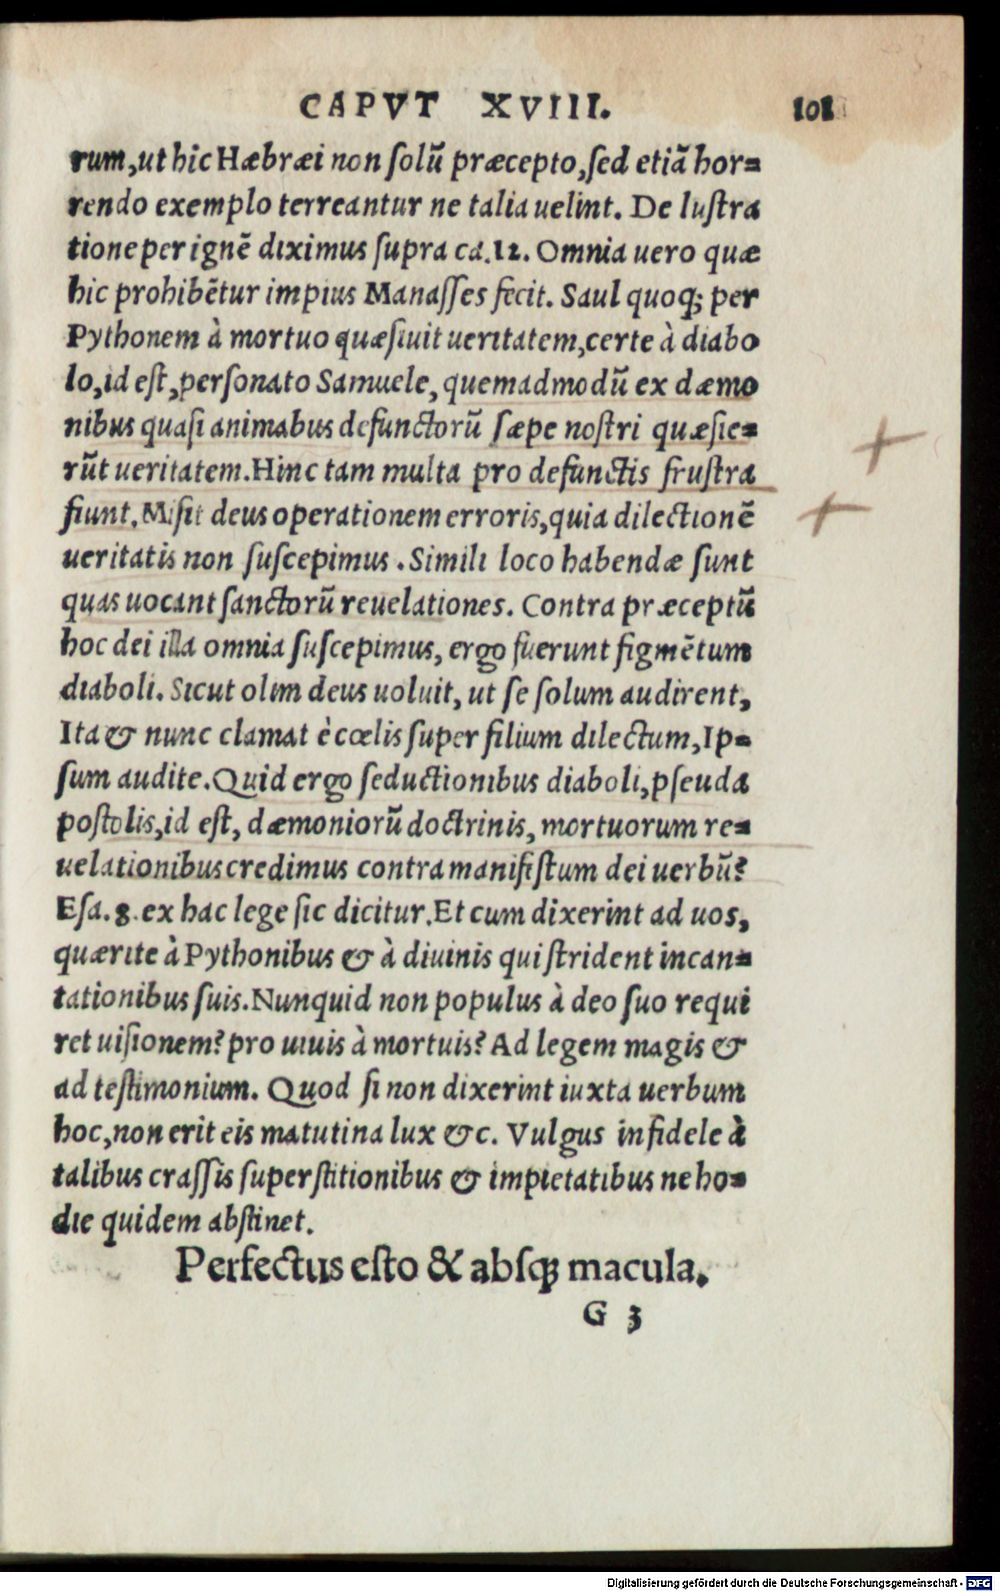 CAPVT XVIII. 101
rum,ut hic Hæbræi non ſolũ præcepto,ſed etiã hor=
rendo exemplo terreantur ne talia uelint. De luſtra
tione per ignẽ diximus ſupra ca.12. Omnia uero quæ
hic prohibẽtur impius Manaſſes fecit. Saul quoq; per
Pythonem à mortuo quæſiuit ueritatem,certe à diabo
lo,id eſt,perſonato Samuele, quemadmodũ ex dæmo
nibus quaſi animabus defunctorũ ſæpe noſtri quæſie=
rũt ueritatem.Hinc tam multa pro defunctis fruſtra
fiunt. Miſit deus operationem erroris,quia dilectionẽ
ueritatis non ſuſcepimus . Simili loco habendæ ſunt
quas uocant ſanctorũ reuelationes. Contra præceptũ
hoc dei illa omnia ſuſcepimus, ergo fuerunt figmẽtum
diaboli. Sicut olim deus uoluit, ut ſe ſolum audirent,
Ita & nunc clamat è cœlis ſuper filium dilectum,Ip=
ſum audite.Quid ergo ſeductionibus diaboli,pſeuda
poſtolis,id eſt, dæmoniorũ doctrinis, mortuorum re=
uelationibus credimus contra manifeſtum dei uerbũ?
Eſa. 8. ex hac lege ſic dicitur.Et cum dixerint ad uos,
quærite à Pythonibus & à diuinis qui ſtrident incan=
tationibus ſuis.Nunquid non populus à deo ſuo requi
ret uiſionem?pro uiuis à mortuis? Ad legem magis &
ad teſtimonium. Quod ſi non dixerint iuxta uerbum
hoc,non erit eis matutina lux &c. Vulgus infidele à
talibus craſſis ſuperſtitionibus & impietatibus ne ho=
die quidem abſtinet.
Perfectus eſto & abſq; macula.
G 3
Digitalisierung gefördert durch die Deutsche Forschungsgemeinschaft - DFG